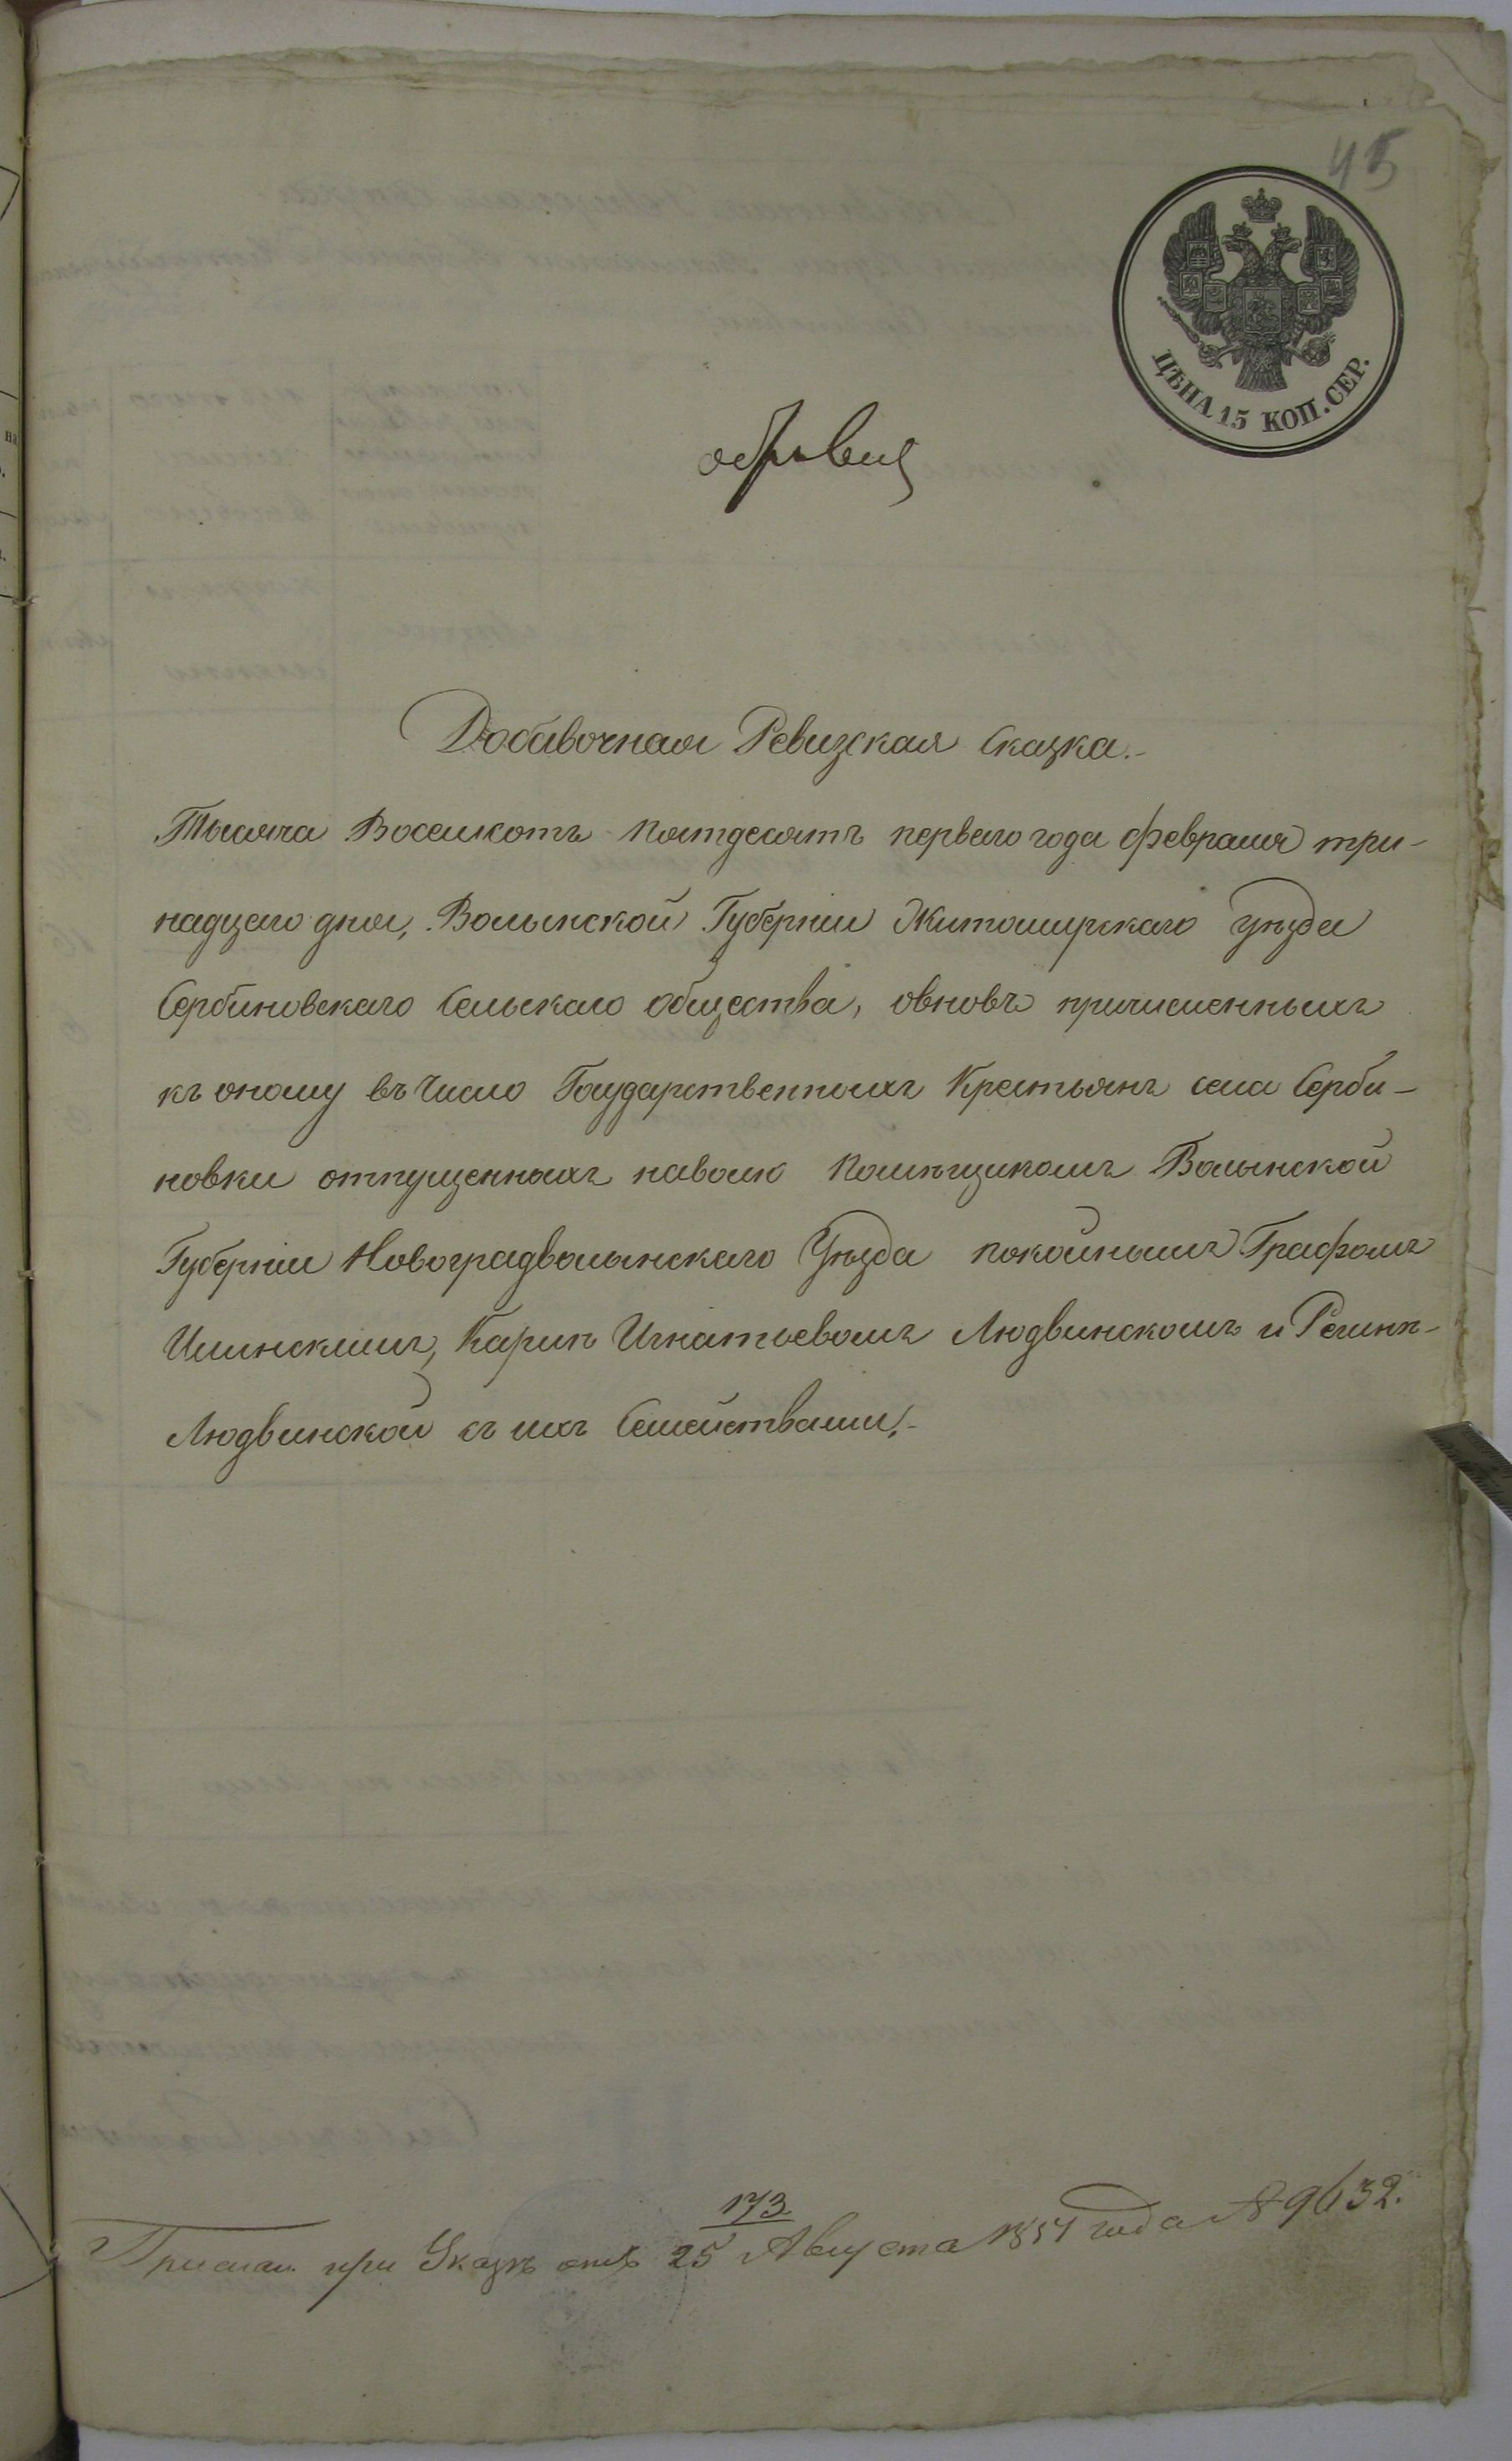 45
ЦѢНА 15 КОП. СЕР.
Добавочная Ревизская Сказка.-
Тысяча Восемсотъ пятдесятъ перваго года февраля три-
надцаго дня, Волынской Губерніи Житомирскаго уѣзда
Сербиновскаго Сельскаго общества, овновь причисленныхъ
къ оному въ Число Государственныхъ Крестьянъ села Серби-
новки отпущенныхъ наволю Помѣщикомъ Волынской
Губерніи Новоградволынскаго Уѣзда покойнымъ Графомъ
Илинскимъ, Карпѣ Игнатьевомъ Людвинскомъ и Регинѣ-
Людвинской съ ихъ Семействами.-
173
Прислан. при Указѣ отъ 25 Августа 1851 года № 9632.